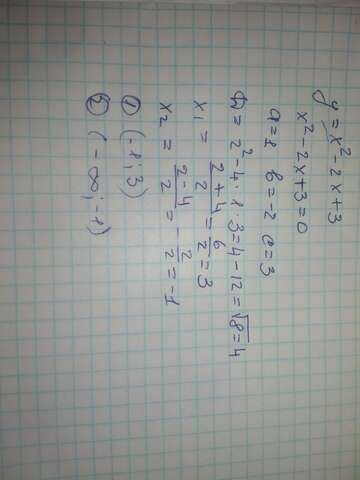 y = x² - 2x + 3
x² - 2x + 3 = 0
a = 1 b = -2 c = 3
D = 2² - 4 · 1 · 3 = 4 - 12 = √8 = 4
x₁ = (2 + 4)/2 = 6/2 = 3
x₂ = (2 - 4)/2 = -2/2 = -1
① (-1; 3)
② (-∞; -1)